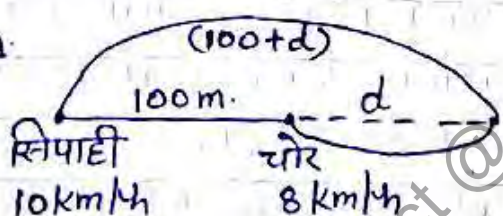 (100+d)
100m. d
सिपाही चोर
10km/h 8km/h